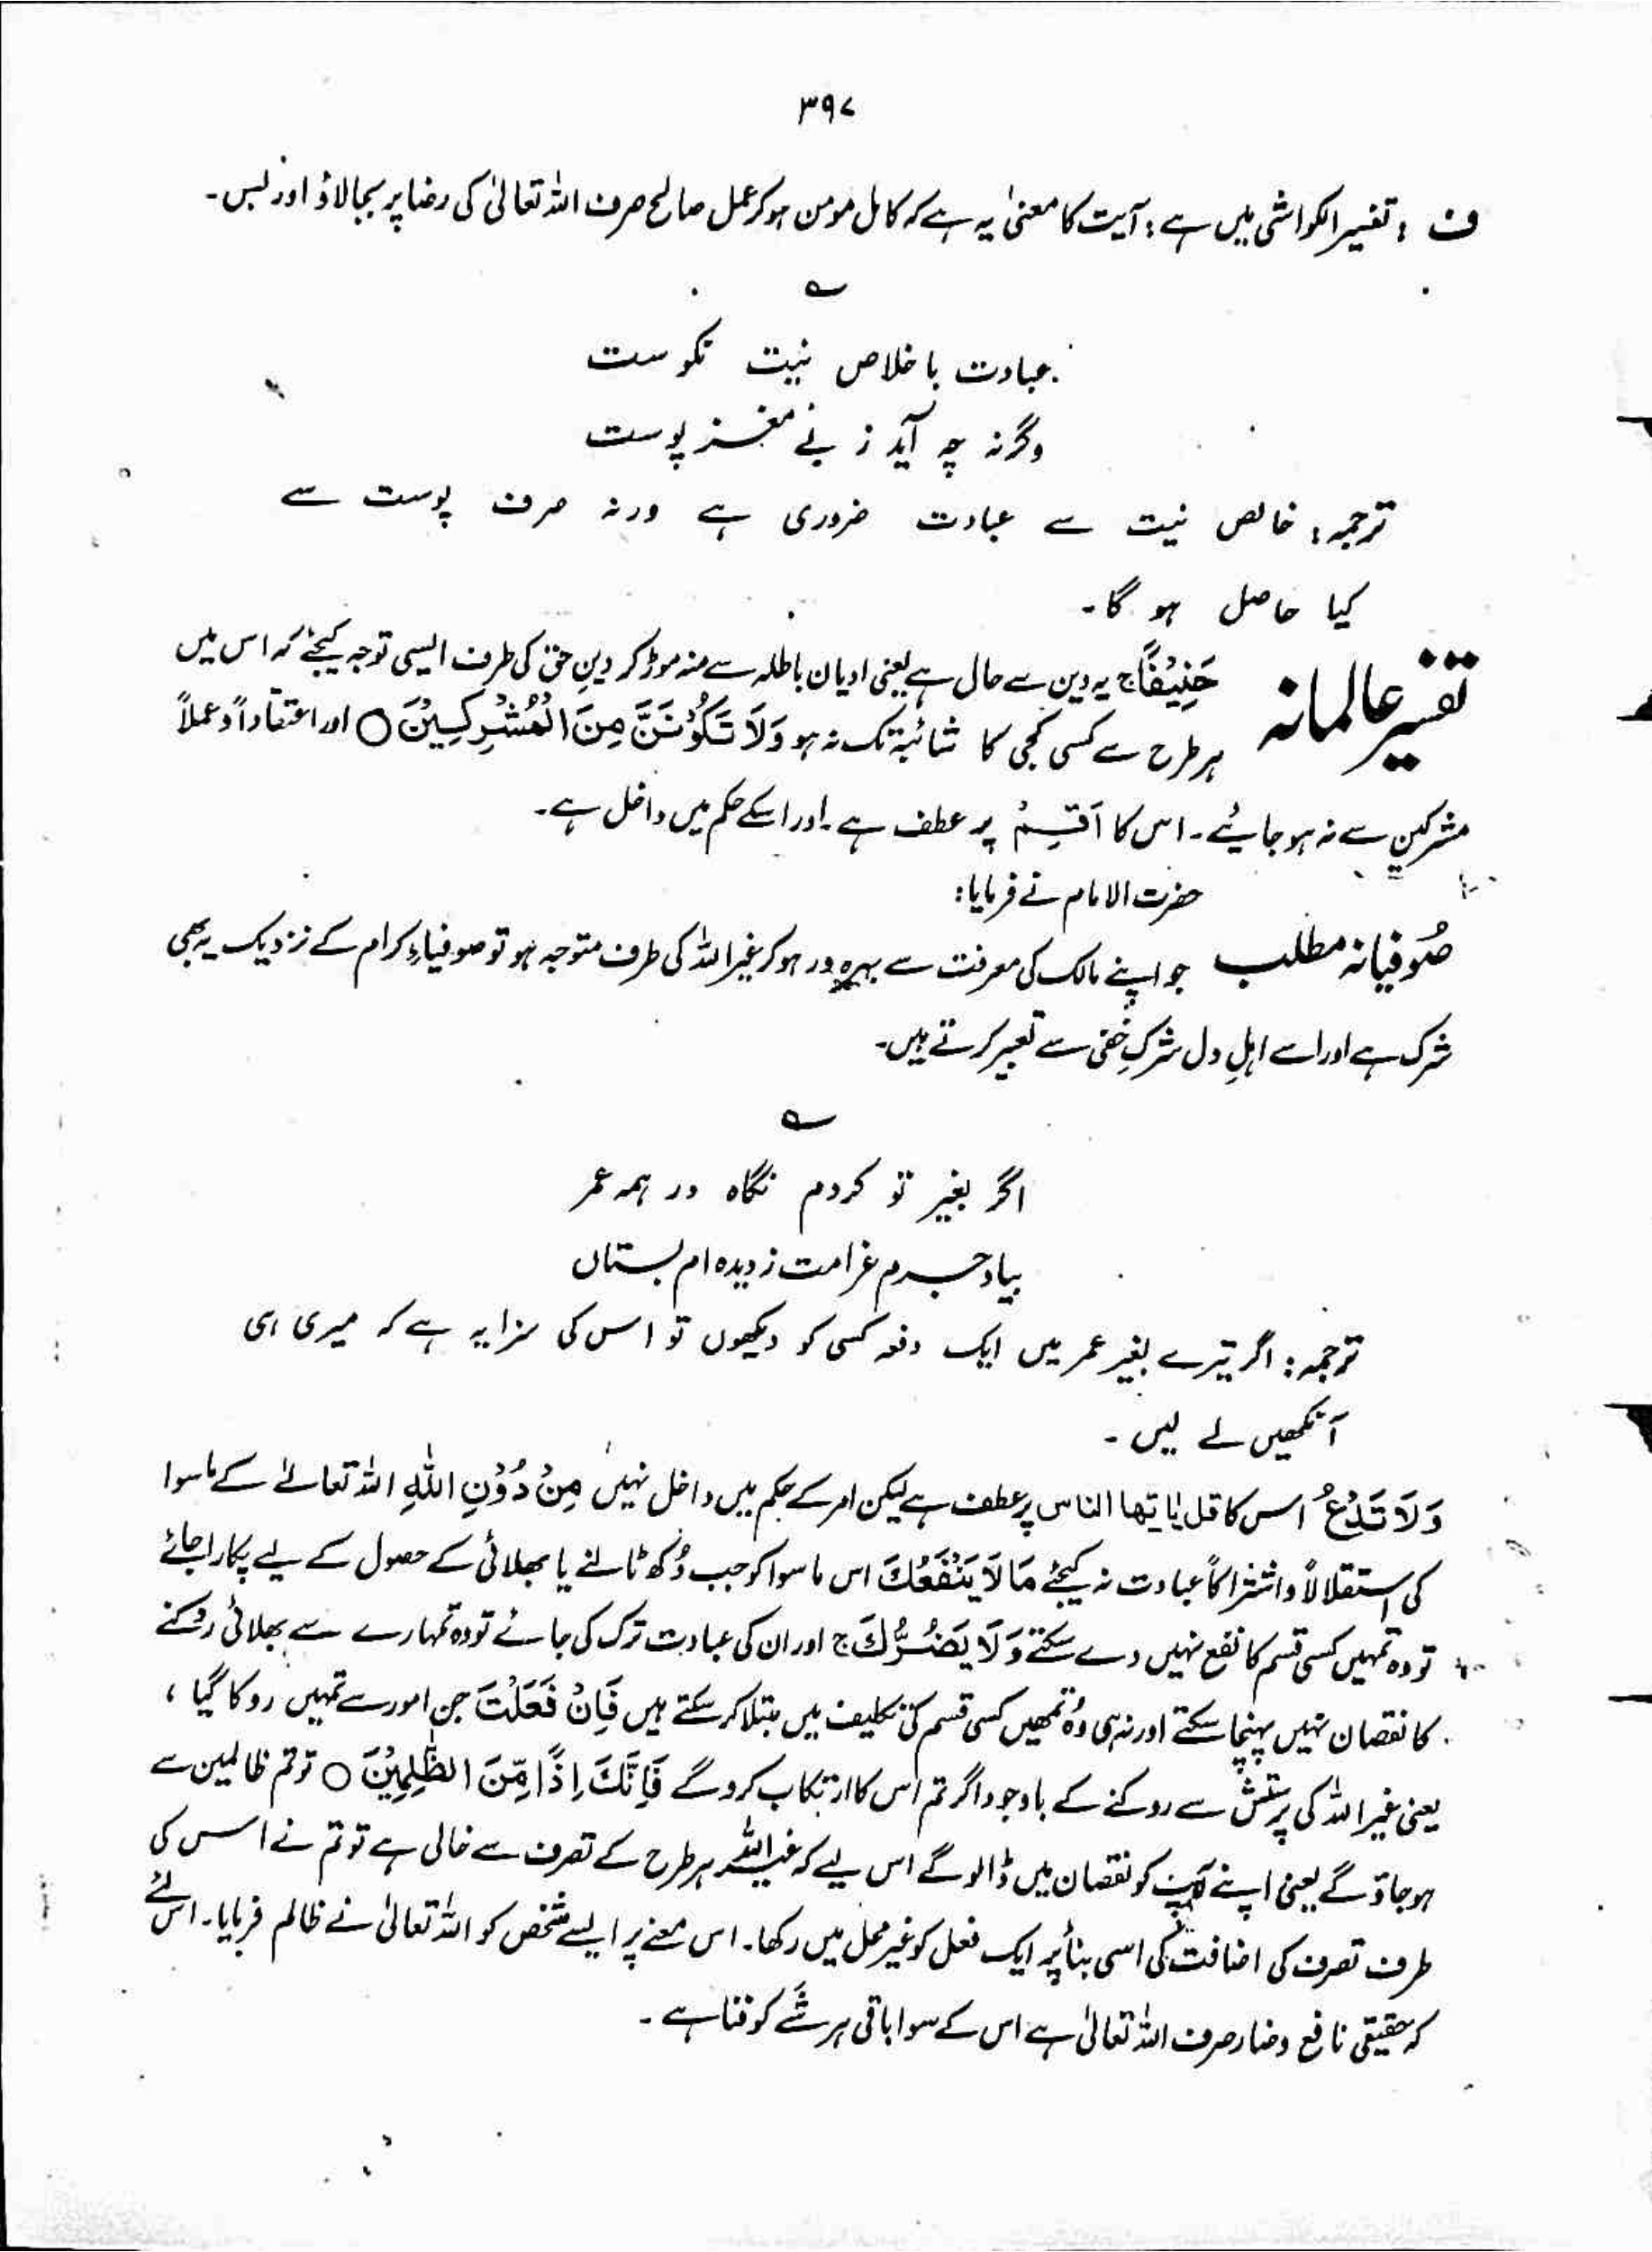 ۳۹۷
ف : تفسیر الکواشی میں ہے : آیت کا معنیٰ یہ ہے کہ کامل مومن ہو کر عمل صالح صرف اللہ تعالیٰ کی رضا پر بجالاؤ اور بس۔
عبادت باخلاص نیت نکوست
وگرنہ چہ آید ز بے مغز پوست
ترجمہ: خالص نیت سے عبادت ضروری ہے ورنہ صرف پوست سے
کیا حاصل ہو گا۔
تفسیر عالمانہ حَنِیْفًا ج یہ دین سے حال ہے یعنی ادیان باطلہ سے منہ موڑ کر دینِ حق کی طرف ایسی توجہ کیجئے کہ اس میں
ہر طرح سے کسی کجی کا شائبۃ تک نہ ہو وَلَا تَکُوْنَنَّ مِنَ الْمُشْرِکِیْنَ ○ اور اعتقاداً و عملاً
مشرکین سے نہ ہو جائیے۔ اس کا اَقِمْ پر عطف ہے۔ اور اسکے حکم میں داخل ہے۔
حضرت الامام نے فرمایا:
صُوفیانہ مطلب جو اپنے مالک کی معرفت سے بہرہ ور ہو کر غیر اللہ کی طرف متوجہ ہو تو صوفیاءِ کرام کے نزدیک یہ بھی
شرک ہے اور اسے اہلِ دل شرکِ خفی سے تعبیر کرتے ہیں۔
اگر بغیر تو کردم نگاہ در ہمہ عمر
بیاد جرم غرامت ز دیدہ ام بستاں
ترجمہ: اگر تیرے بغیر عمر میں ایک دفعہ کسی کو دیکھوں تو اس کی سزا یہ ہے کہ میری ہی
آنکھیں لے لیں۔
وَلَا تَدْعُ اس کا قل یٰایتھا الناس پر عطف ہے لیکن امر کے حکم میں داخل نہیں مِنْ دُوْنِ اللّٰہِ اللہ تعالےٰ کے ماسوا
کی استقلالاً و اشتراکاً عبادت نہ کیجئے مَا لَا یَنْفَعُکَ اس ماسوا کو جب دُکھ ٹالنے یا بھلائی کے حصول کے لیے پکارا جائے
تو وہ تمہیں کسی قسم کا نفع نہیں دے سکتے وَلَا یَضُرُّکَ ج اور ان کی عبادت ترک کی جائے تو وہ تمہارے سے بھلائی روکنے
کا نقصان نہیں پہنچا سکتے اور نہ ہی وُہ تمھیں کسی قسم کی تکلیف میں مبتلا کر سکتے ہیں فَاِنْ فَعَلْتَ جن امور سے تمہیں روکا گیا ،
یعنی غیر اللہ کی پرستش سے روکنے کے باوجود اگر تم اس کا ارتکاب کرو گے فَاِنَّکَ اِذًا مِّنَ الظّٰلِمِیْنَ ○ تو تم ظالمین سے
ہو جاؤ گے یعنی اپنے آپ کو نقصان میں ڈالو گے اس لیے کہ غیر اللہ ہر طرح کے تصرف سے خالی ہے تو تم نے اس کی
طرف تصرف کی اضافت کی اسی بنأ پر ایک فعل کو غیر محل میں رکھا۔ اس معنے پر ایسے شخص کو اللہ تعالیٰ نے ظالم فرمایا۔ اس لئے
کہ حقیقی نافع و ضار صرف اللہ تعالیٰ ہے اس کے سوا باقی ہر شَے کو فنا ہے۔